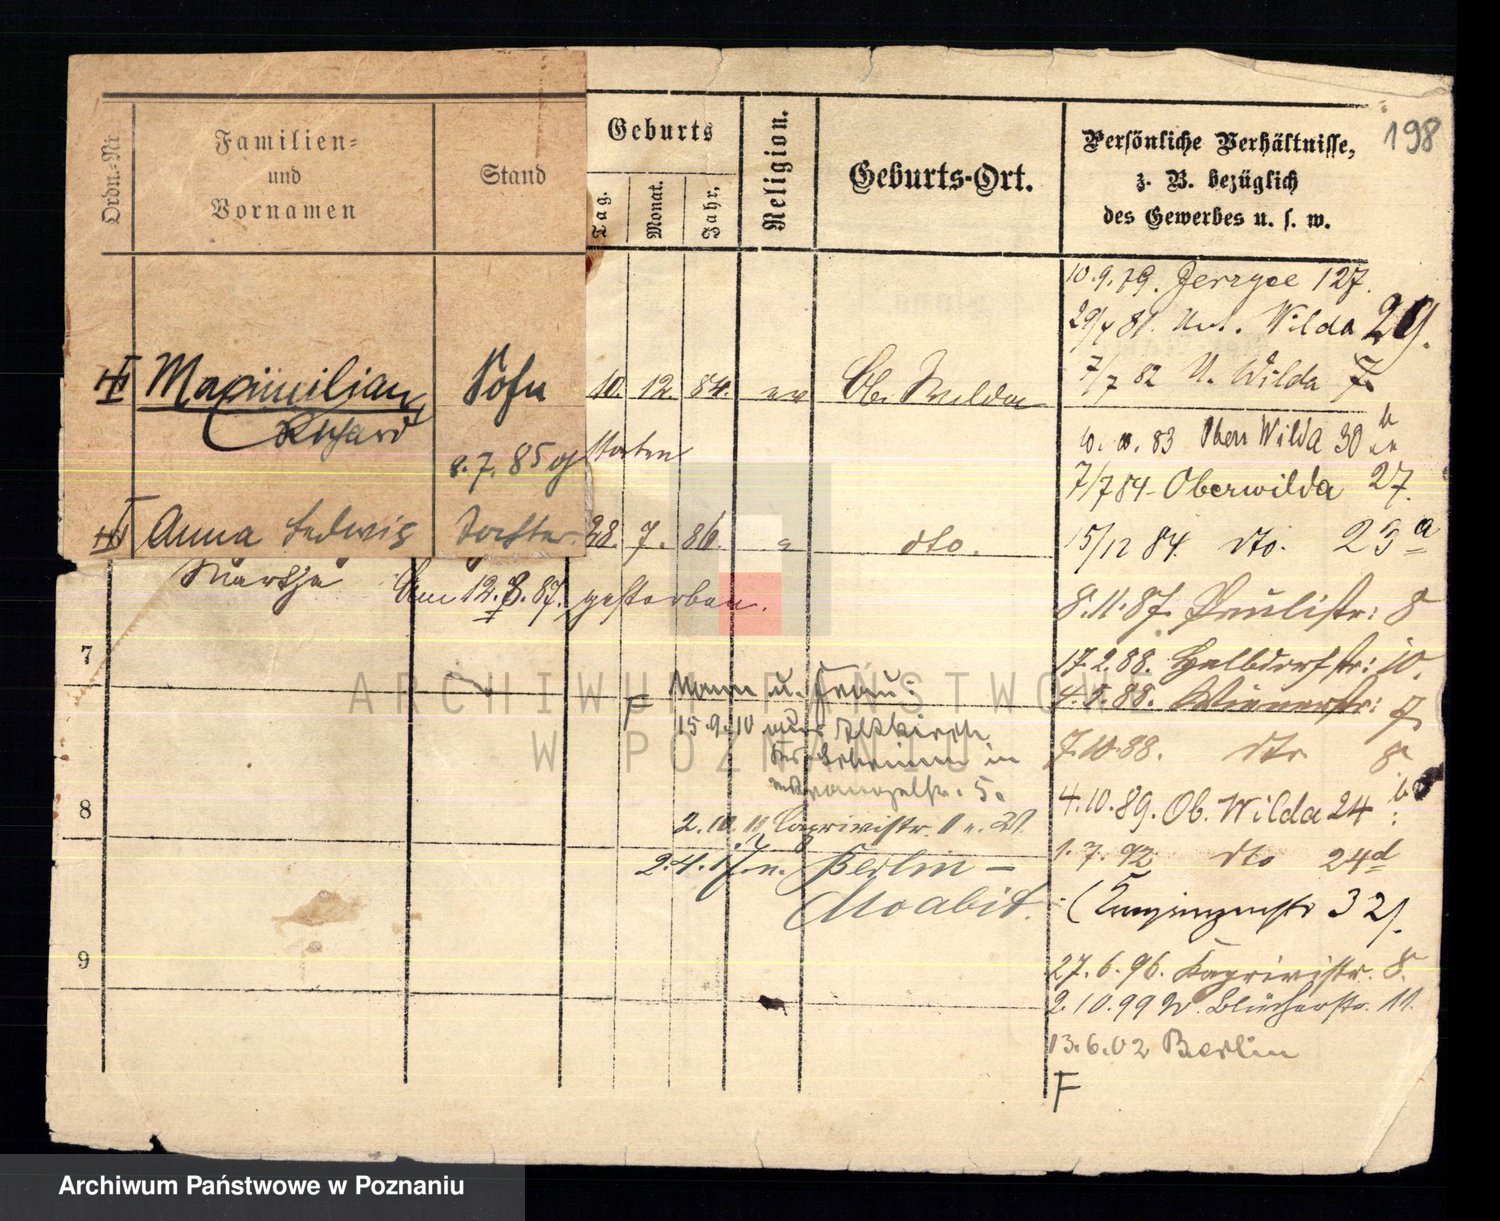 Ordn.-Nr.
Familien=
und
Vornamen
Stand
Geburts
Tag.
Monat.
Jahr.
Religion.
Geburts-Ort.
Persönliche Verhältnisse,
z. B. bezüglich
des Gewerbes u. s. w.
198
Maximilian Sohn 10. 12. 84. ev Ob. Wilda
Richard
8. 7. 85 gestorben
Anna Hedwig Tochter 28. 7. 86. " dto.
Martha Am 12. 8. 87. gestorben.
7
8
9
Mann u. Frau:
15.9.10 aus
in
5.
2.10.11 Caprivistr.
2.4.17 n. Berlin -
Moabit.
10.9.79. Jerzyce 127.
29/4 81. Unt. Wilda 29.
7/7 82 U. Wilda 7.
83 Ober Wilda 30
7/7 84 Oberwilda 27.
15/12 84 dto. 23 a
8.11.87. Paulistr: 8
17.2.88. Halbdorfstr: 10.
4.5.88. Wienerstr: 7.
7.10.88. dto 8
4.10.89. Ob. Wilda 24 b
1.7.92 dto 24 d
(Kronprinzenstr 32).
27.6.96. Kaprivistr. 8.
2.10.99 W. Blücherstr. 11.
13.6.02 Berlin
F
ARCHIWUM PAŃSTWOWE
W POZNANIU
Archiwum Państwowe w Poznaniu